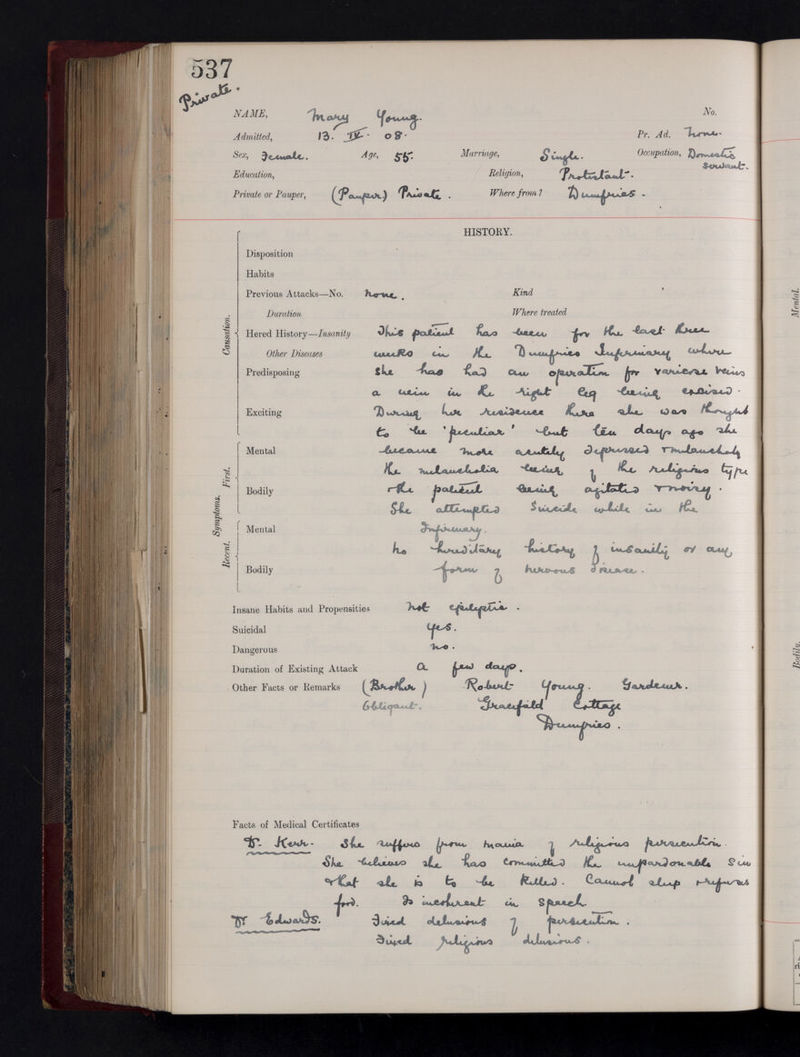 537
Private.
NAME, Mary Young. No.
Admitted, 13. IV. 08. Pr. Ad. None.
Sex, Female. Age, 55. Marriage, Single. Occupation, Domestic
Servant.
Education, Religion, Protestant.
Private or Pauper, (Pauper) Private. Where from? Dumfries.
HISTORY.
Disposition
Habits
Previous Attacks—No. None. Kind
Duration Where treated
Hered History—Insanity This patient has been for the last three
Other Diseases weeks in the Dumfries Infirmary where
Predisposing she has had an operation for varicose veins
a vein in the right leg being excised.
Exciting During her residence there she was thought
to be 'peculiar' but ten days ago she
Mental became more acutely depressed & melancholy
the melancholia being of the religious type
Bodily & the patient being agitated & noisy.
She attempted Suicide while in the
Mental Infirmary.
No hereditary history of insanity or any
Bodily form of nervous disease.
Causation.
Symptoms.
First.
Recent.
Insane Habits and Propensities Not epileptic.
Suicidal Yes.
Dangerous No.
Duration of Existing Attack A few days.
Other Facts or Remarks (Brother) Robert Young. Gardener.
Obligant. Gracefield Cottage
Dumfries.
Facts of Medical Certificates
Dr. Kerr. She suffers from mania of religious persecution.
She believes she has committed the unpardonable Sin
& that she is to be killed. Cannot sleep & refuses
food. Is incoherent in speech
Dr Edwards. Fixed delusions of persecution.
Fixed religious delusions.
Mental.
Bodily.